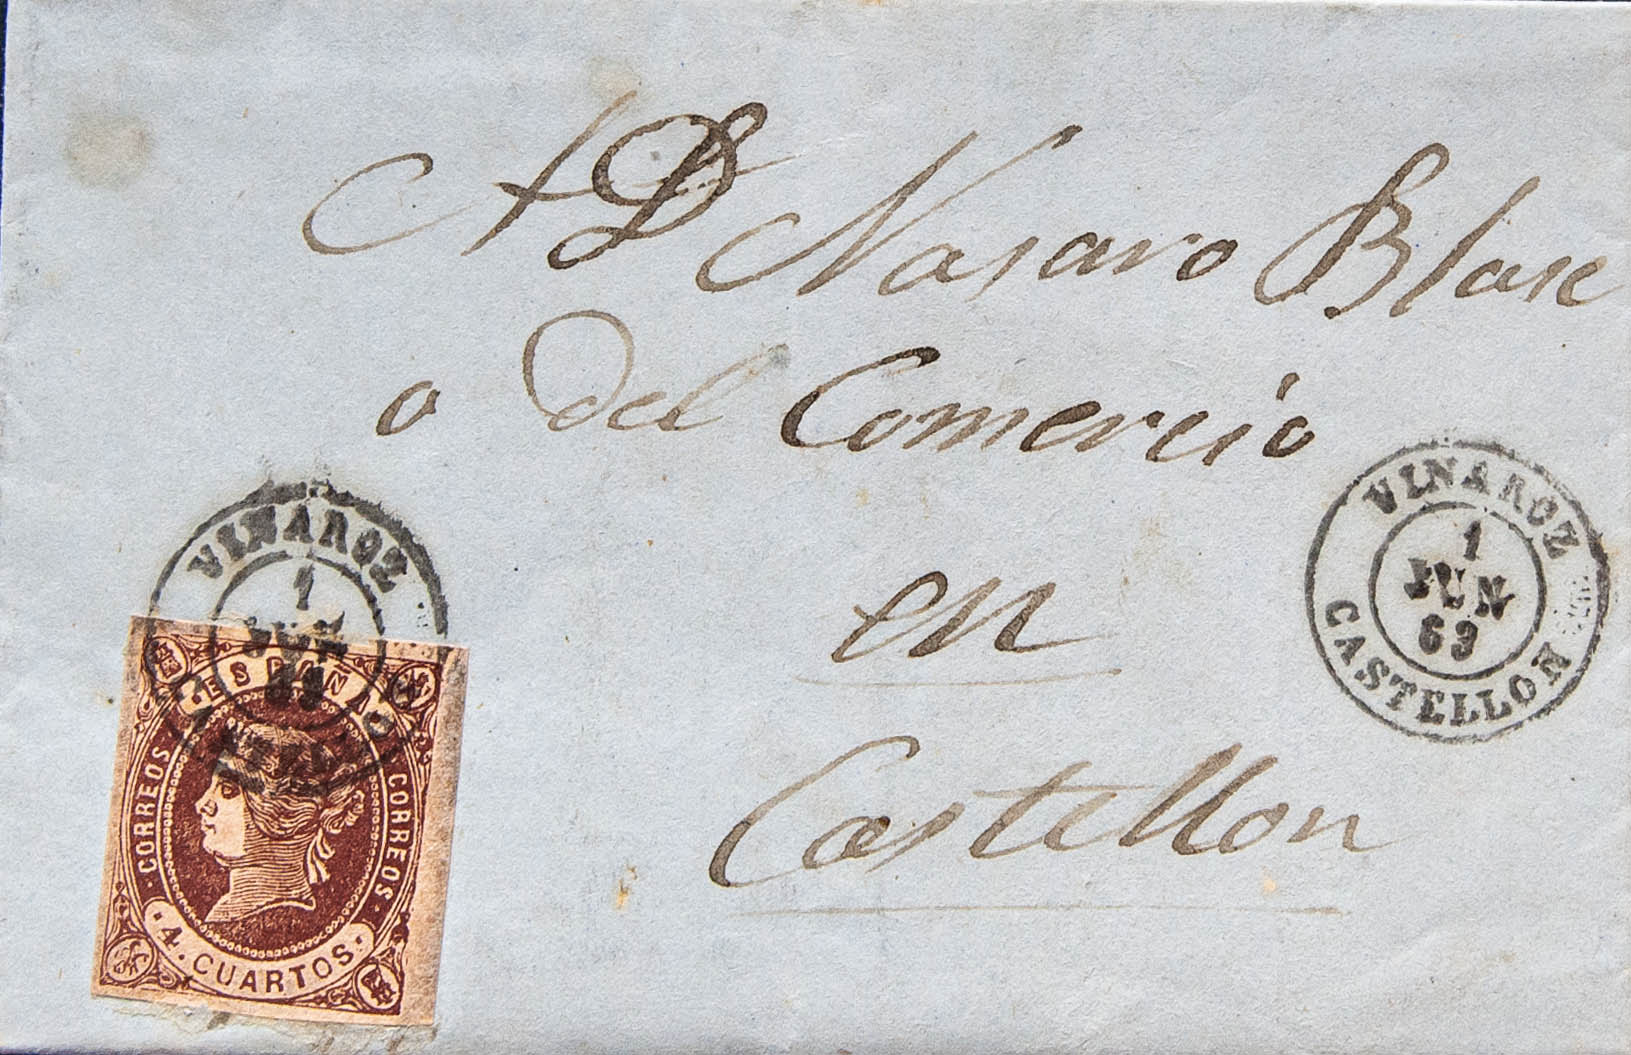 A D Nasaro Blase
o del Comercio
en
Castellon
VINAROZ
1
JUN
63
CASTELLON
VINAROZ
1
JUN
ESPAÑA
CORREOS
CORREOS
4. CUARTOS